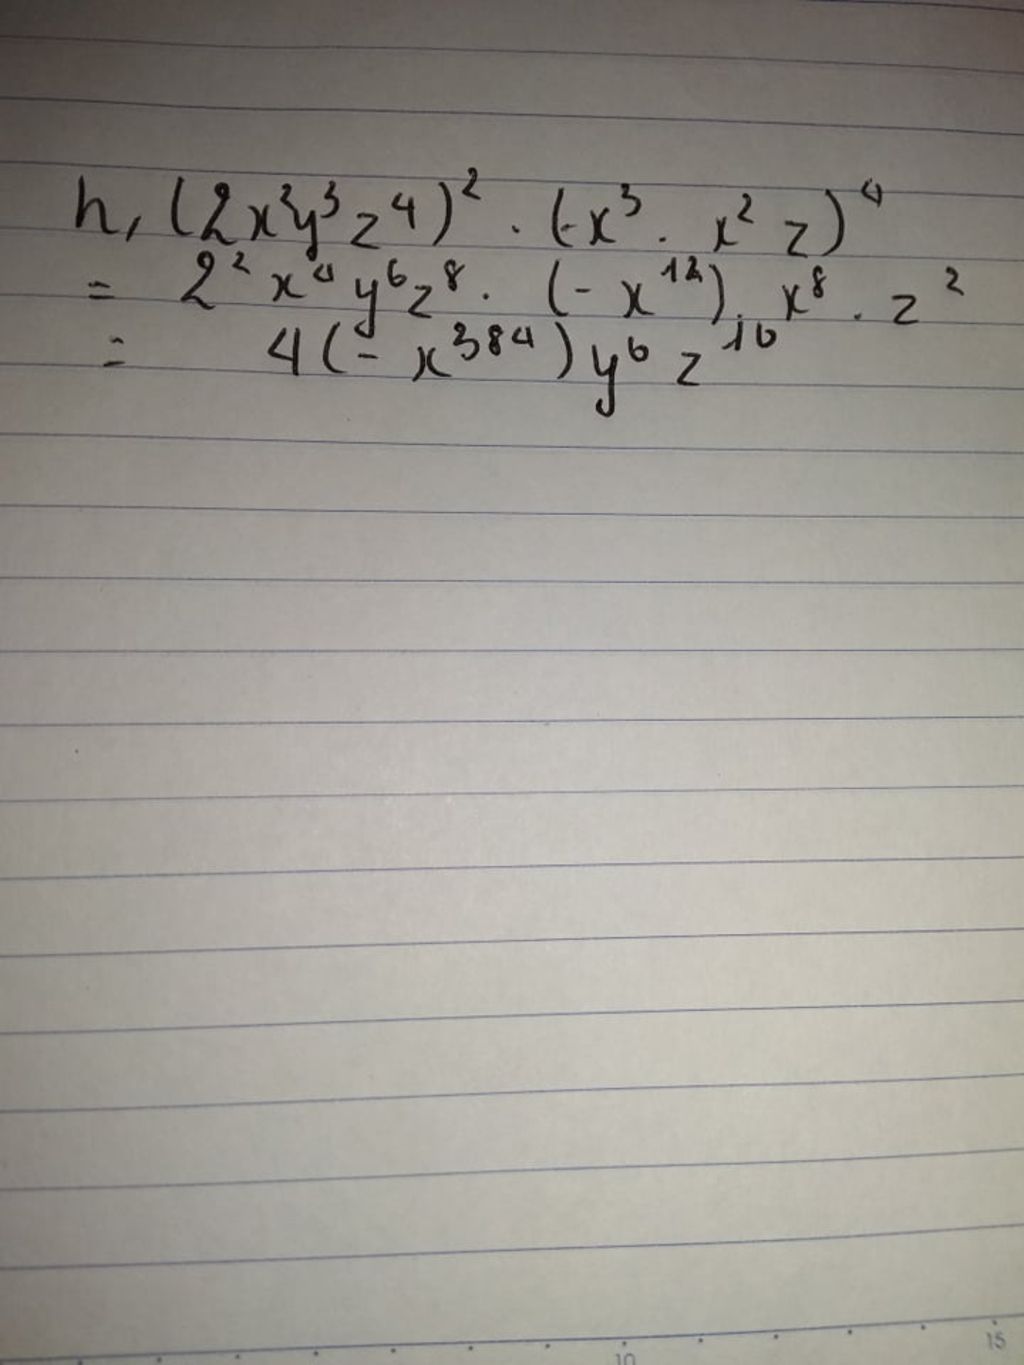 h, (2x²y³z⁴)² . (-x³ . x² z)⁴
= 2² x⁴ y⁶ z⁸ . (- x¹²) . x⁸ . z²
= 4 (- x³⁸⁴) y⁶ z¹⁰
10
15